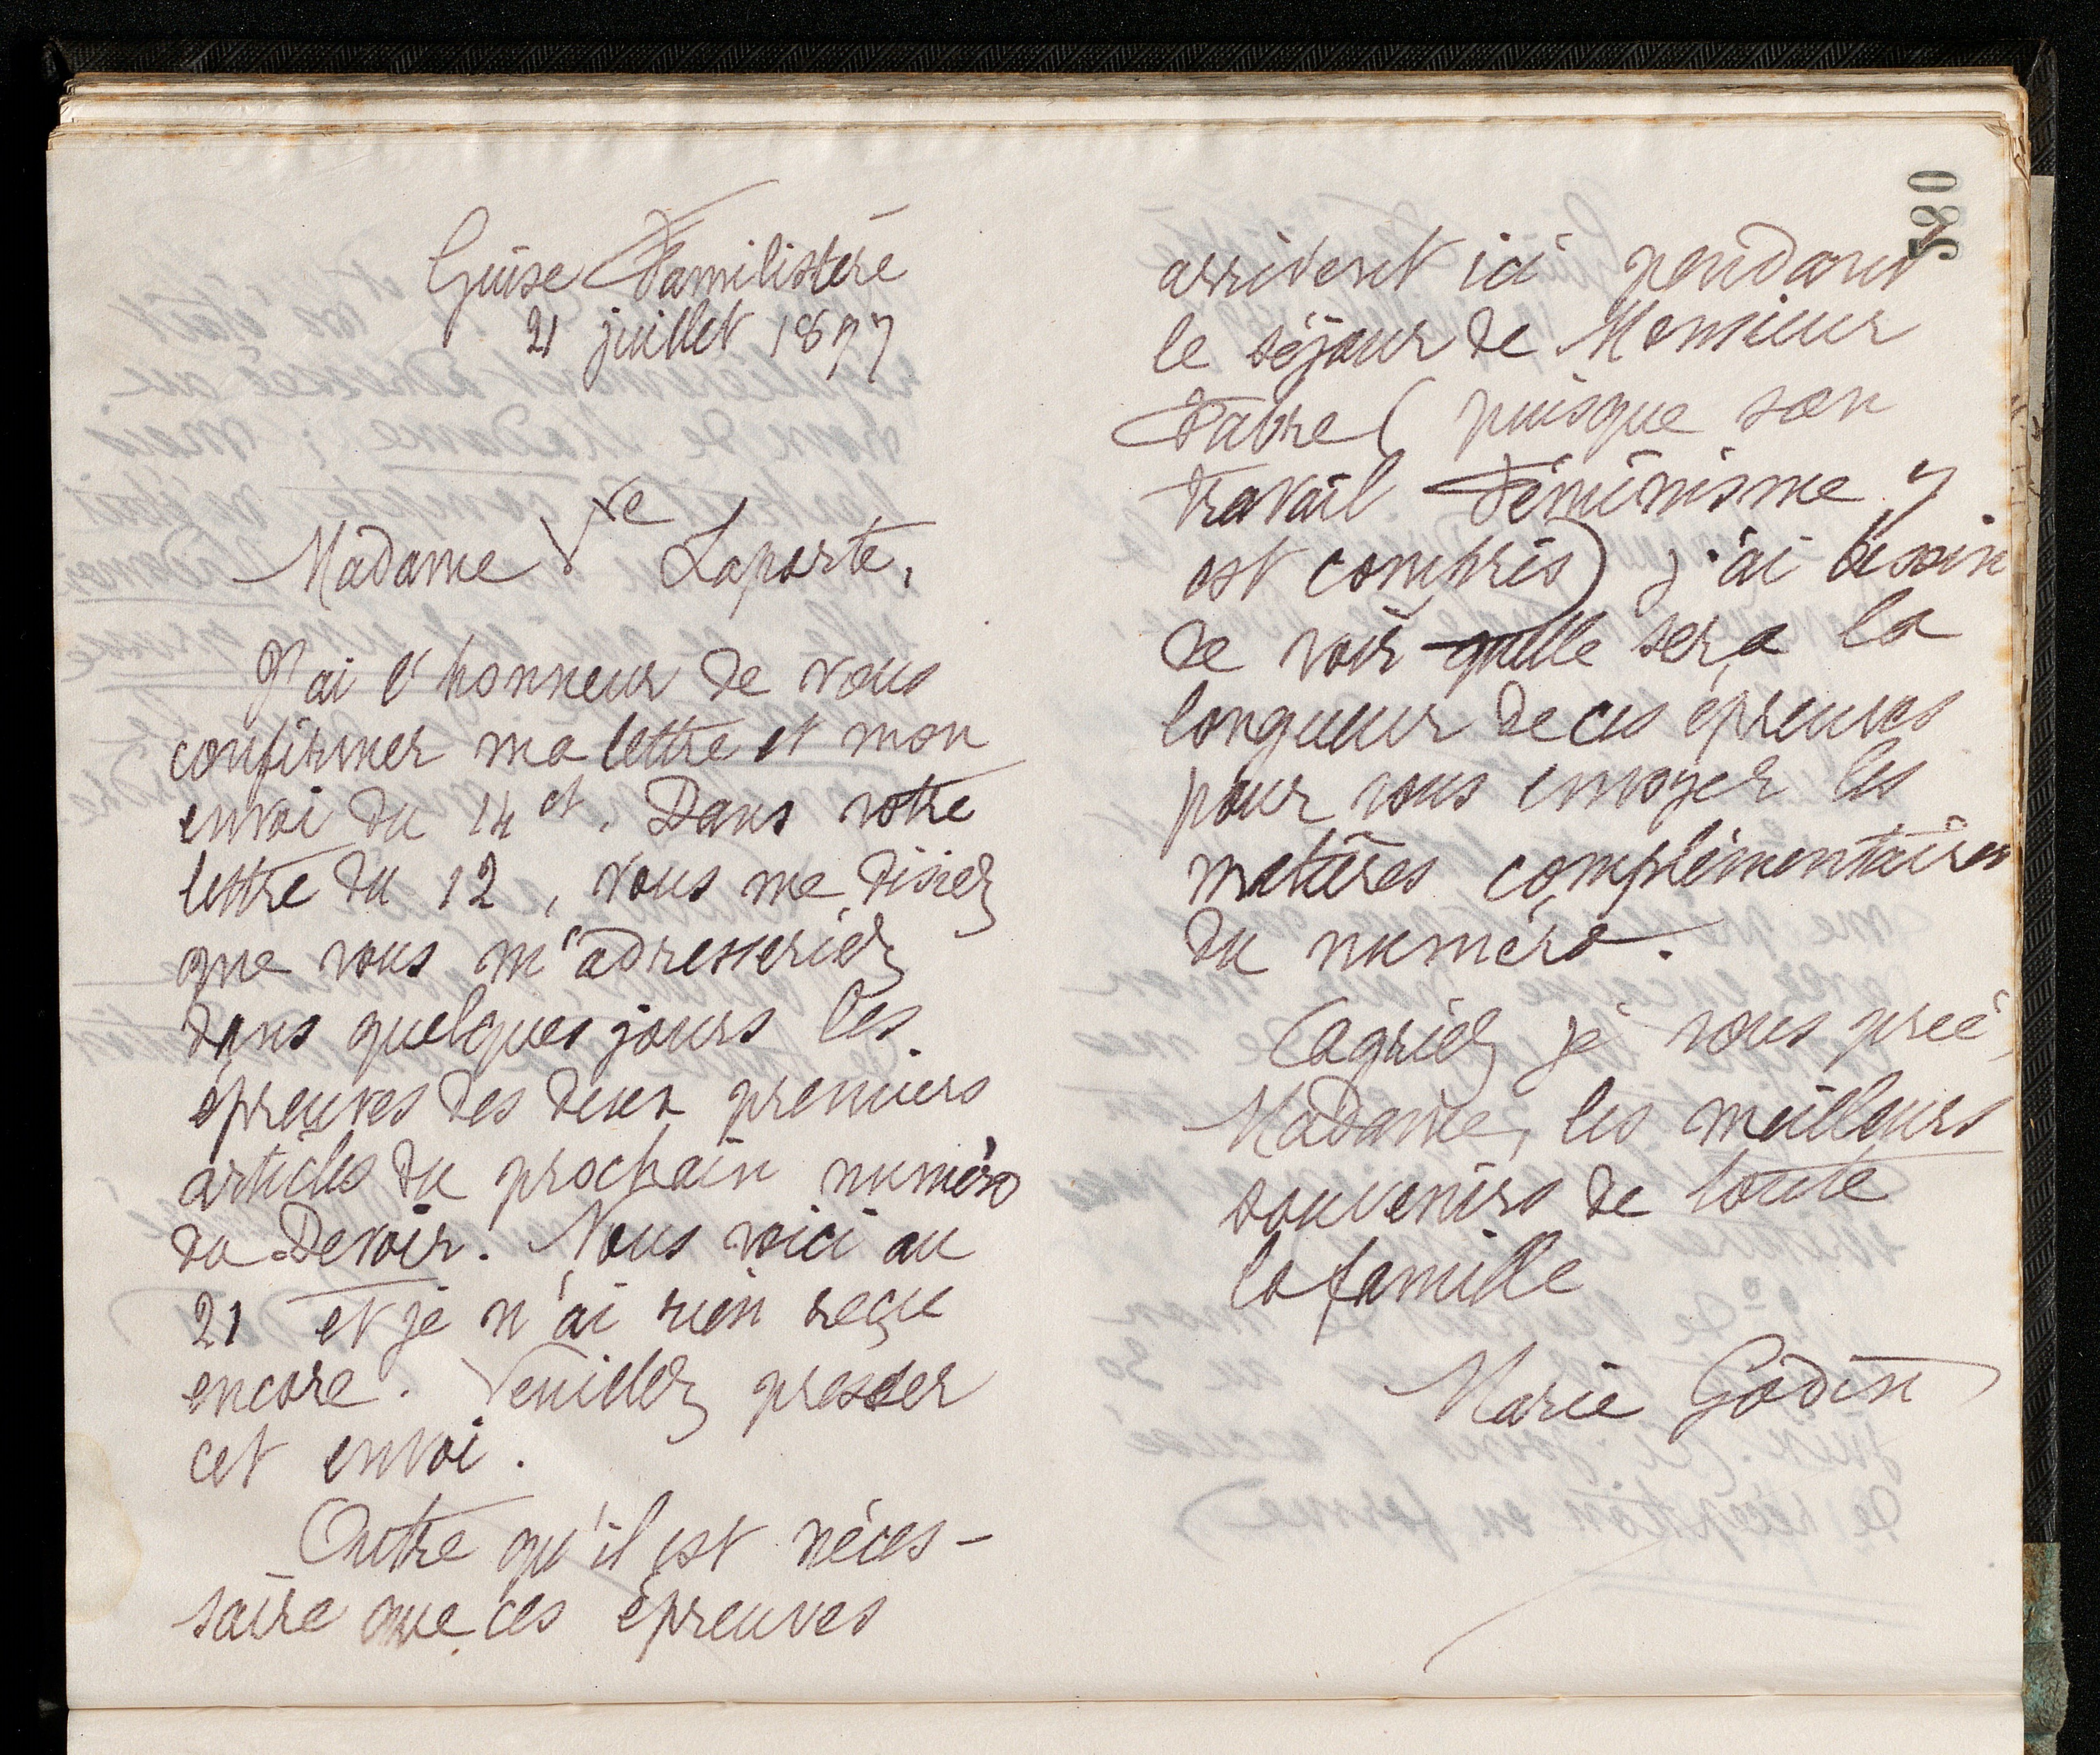 Guise Familistère
21 juillet 1897
Madame Vve Laporte,
J'ai l'honneur de vous
confirmer ma lettre et mon
envoi du 14 ct. Dans votre
lettre du 12, vous me disiez
que vous m'adresseriez
dans quelques jours les
épreuves des deux premiers
articles du prochain numéro
du Devoir. Nous voici au
21 et je n'ai rien reçu
encore. Veuillez presser
cet envoi.
Outre qu'il est néces-
saire que ces épreuves
580
arrivent ici pendant
le séjour de Monsieur
Fabre (puisque son
travail Féminisme y
est compris) j'ai besoin
de voir quelle sera la
longueur de ces épreuves
pour vous envoyer les
matières complémentaires
du numéro.
Cagriez je vous prie,
Madame, les meilleurs
souvenirs de toute
la famille
Marie Godin